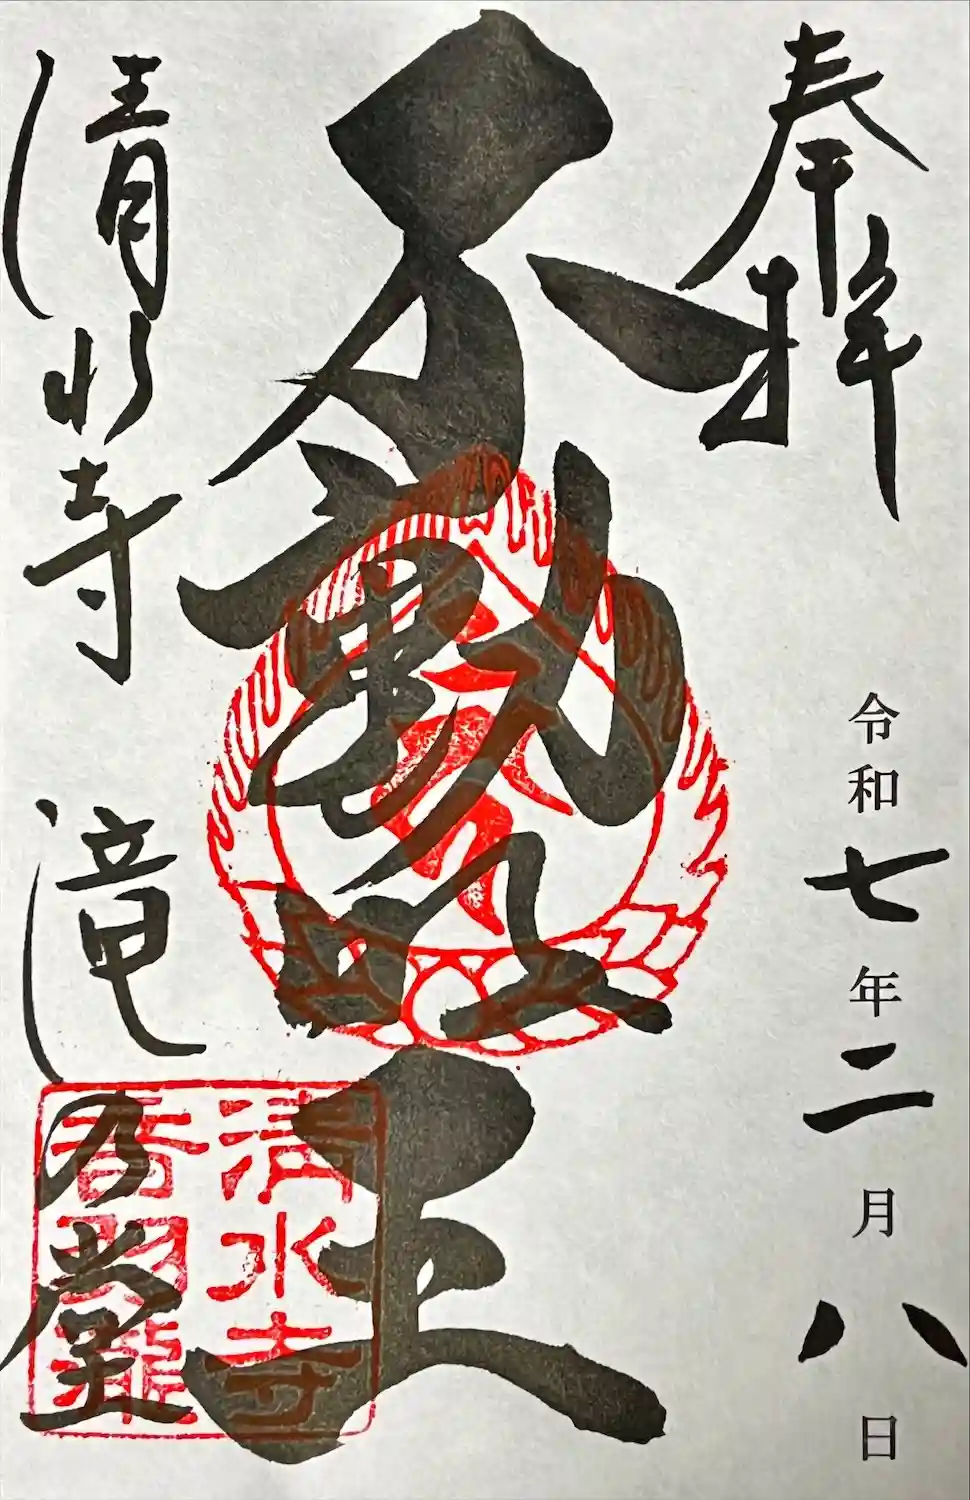 奉拝
令和七年二月八日
不動明王
清水寺 滝の堂
清水寺
音羽瀧